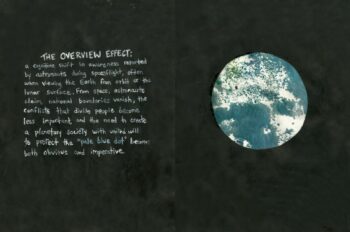 THE OVERVIEW EFFECT:
a cognitive shift in awareness reported
by astronauts during spaceflight, often
when viewing the Earth from orbit or the
lunar surface. From space, astronauts
claim, national boundaries vanish, the
conflicts that divide people become
less important, and the need to create
a planetary society with united will
to protect the "pale blue dot" becomes
both obvious and imperative.